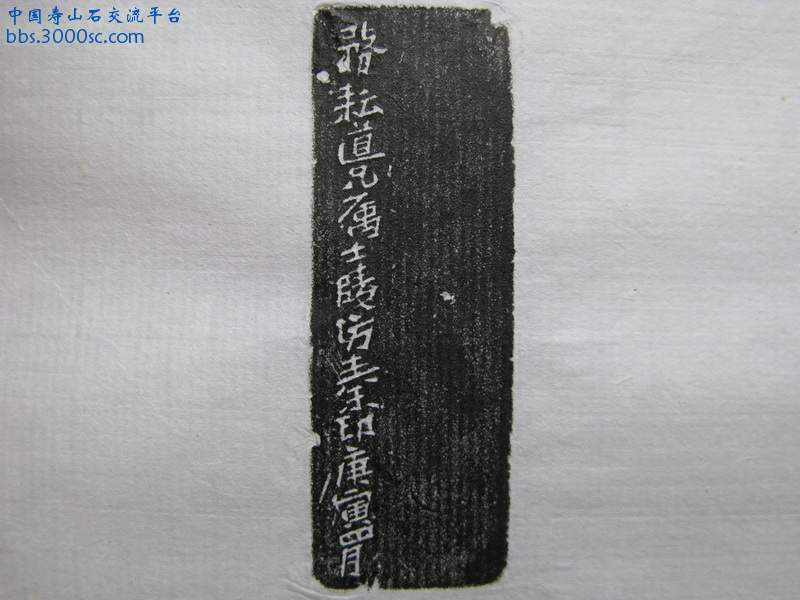 中国寿山石交流平台
bbs.3000sc.com
耘道兄属士陵仿秦印庚寅四月